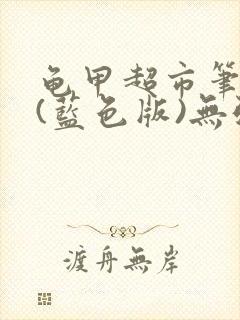 龟甲超市筆
(藍色版)無
渡舟無岸